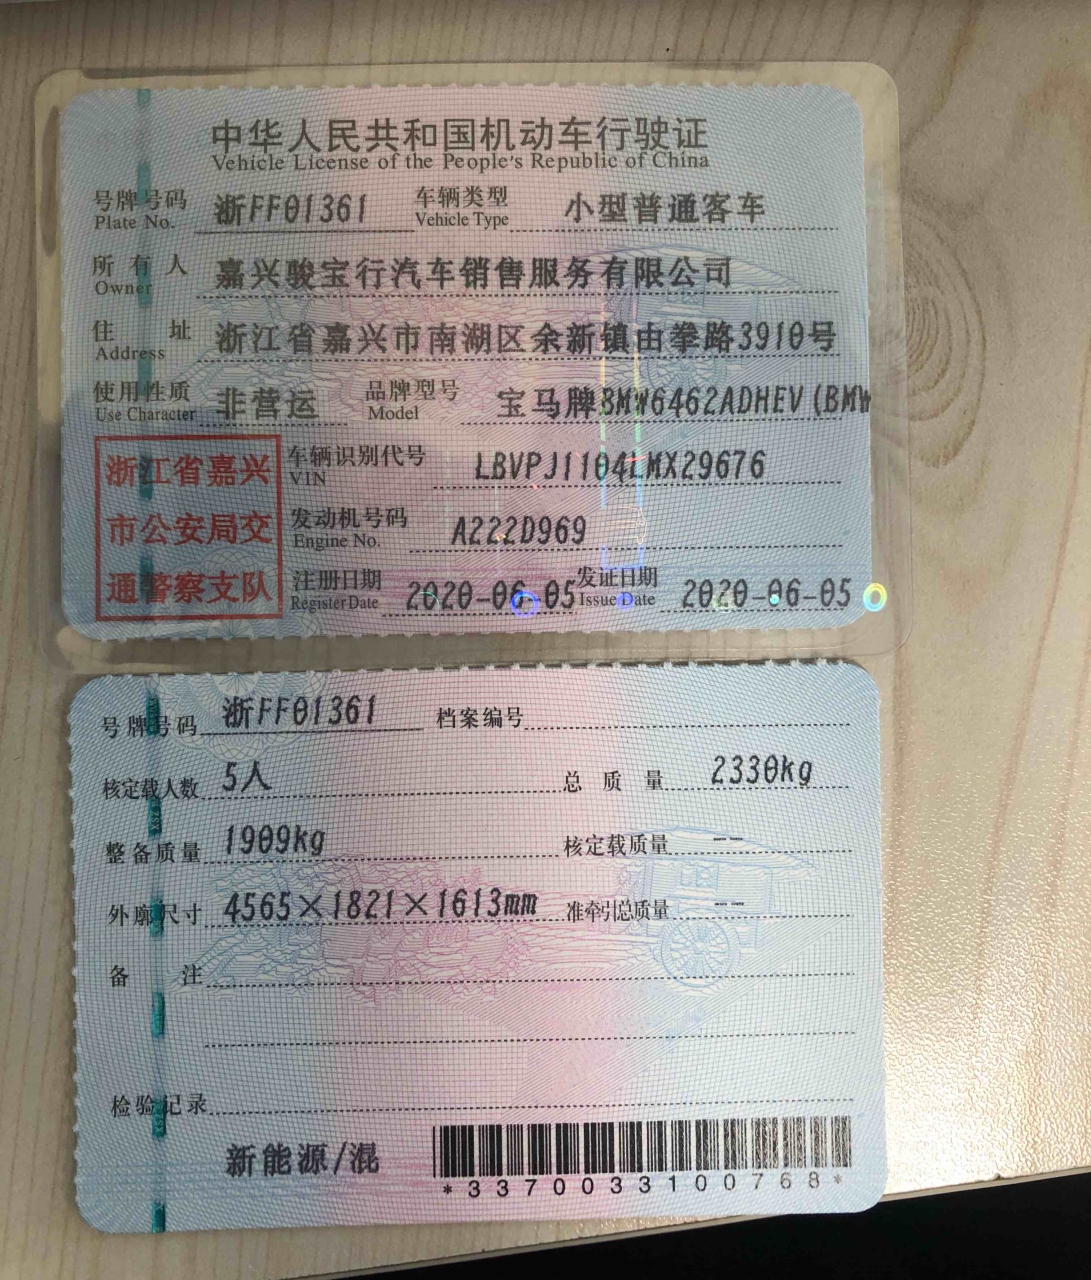 中华人民共和国机动车行驶证
Vehicle License of the People's Republic of China
号牌号码 浙FF01361 车辆类型 小型普通客车
Plate No. Vehicle Type
所有人 嘉兴骏宝行汽车销售服务有限公司
Owner
住址 浙江省嘉兴市南湖区余新镇由拳路3910号
Address
使用性质 非营运 品牌型号 宝马牌BMW6462ADHEV(BMW
Use Character Model
浙江省嘉兴
市公安局交
通警察支队
车辆识别代号 LBVPJ1104LMX29676
VIN
发动机号码 A222D969
Engine No.
注册日期 2020-06-05 发证日期 2020-06-05
Register Date Issue Date
号牌号码 浙FF01361 档案编号
核定载人数 5人 总质量 2330kg
整备质量 1909kg 核定载质量 --
外廓尺寸 4565×1821×1613mm 准牵引总质量 --
备注
检验记录
新能源/混
*3370033100768*